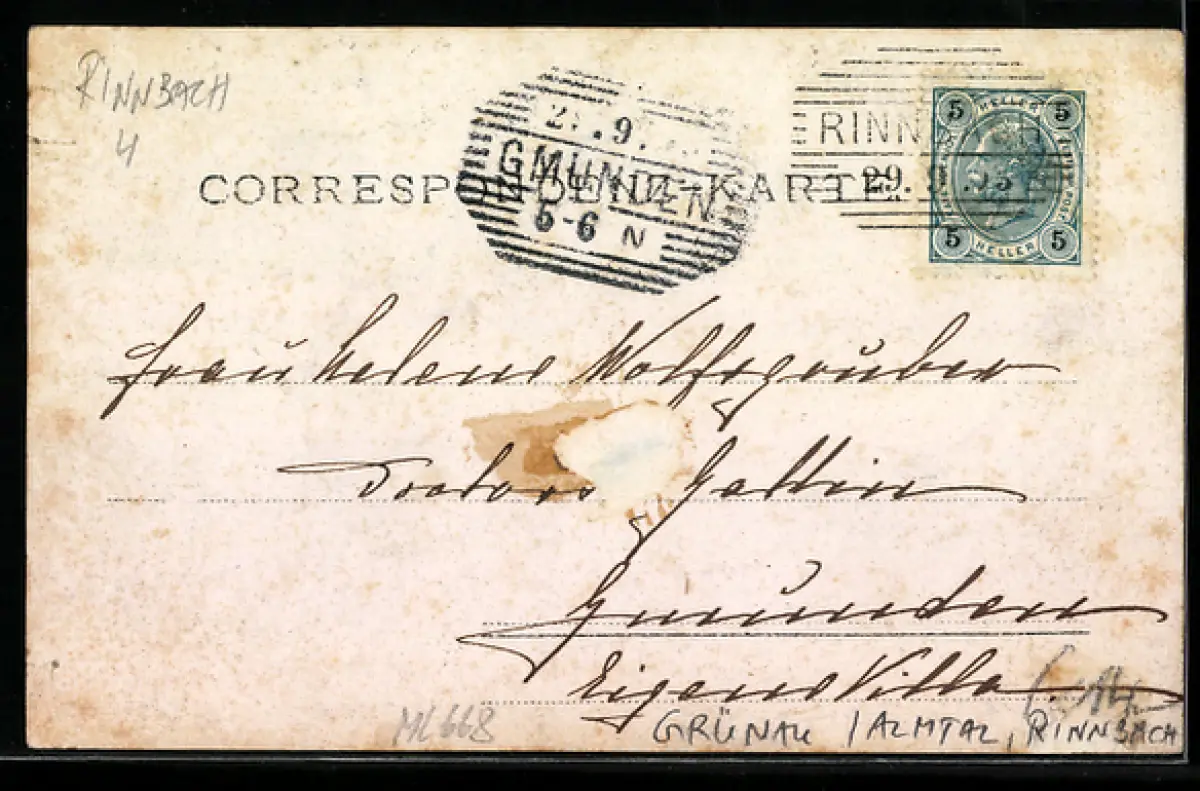 RINNBACH
4
CORRESPONDENZ-KARTE
29.9.
GMUNDEN
5-6 N
RINNBACH
29. 9. 03
5 HELLER 5
5 HELLER 5
Frau Helene Wolfsgruber
Doctors Gattin
Gmunden
Eigene Villa
ML668
GRÜNAU / ALMTAL, RINNBACH